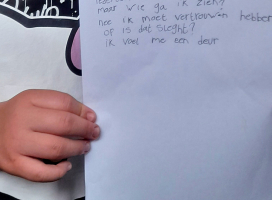 maar wie ga ik zien?
nee ik moet vertrouwen hebben
of is dat slecht?
ik voel me een deur